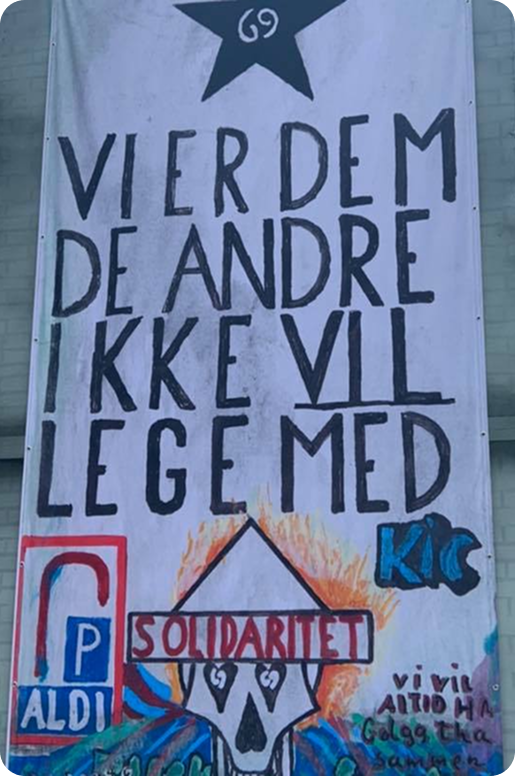 69
VI ER DEM
DE ANDRE
IKKE VIL
LEGE MED
KiC
P
ALDI
SOLIDARITET
69 69
vi vil
ALTID HA
Golgatha
sammen